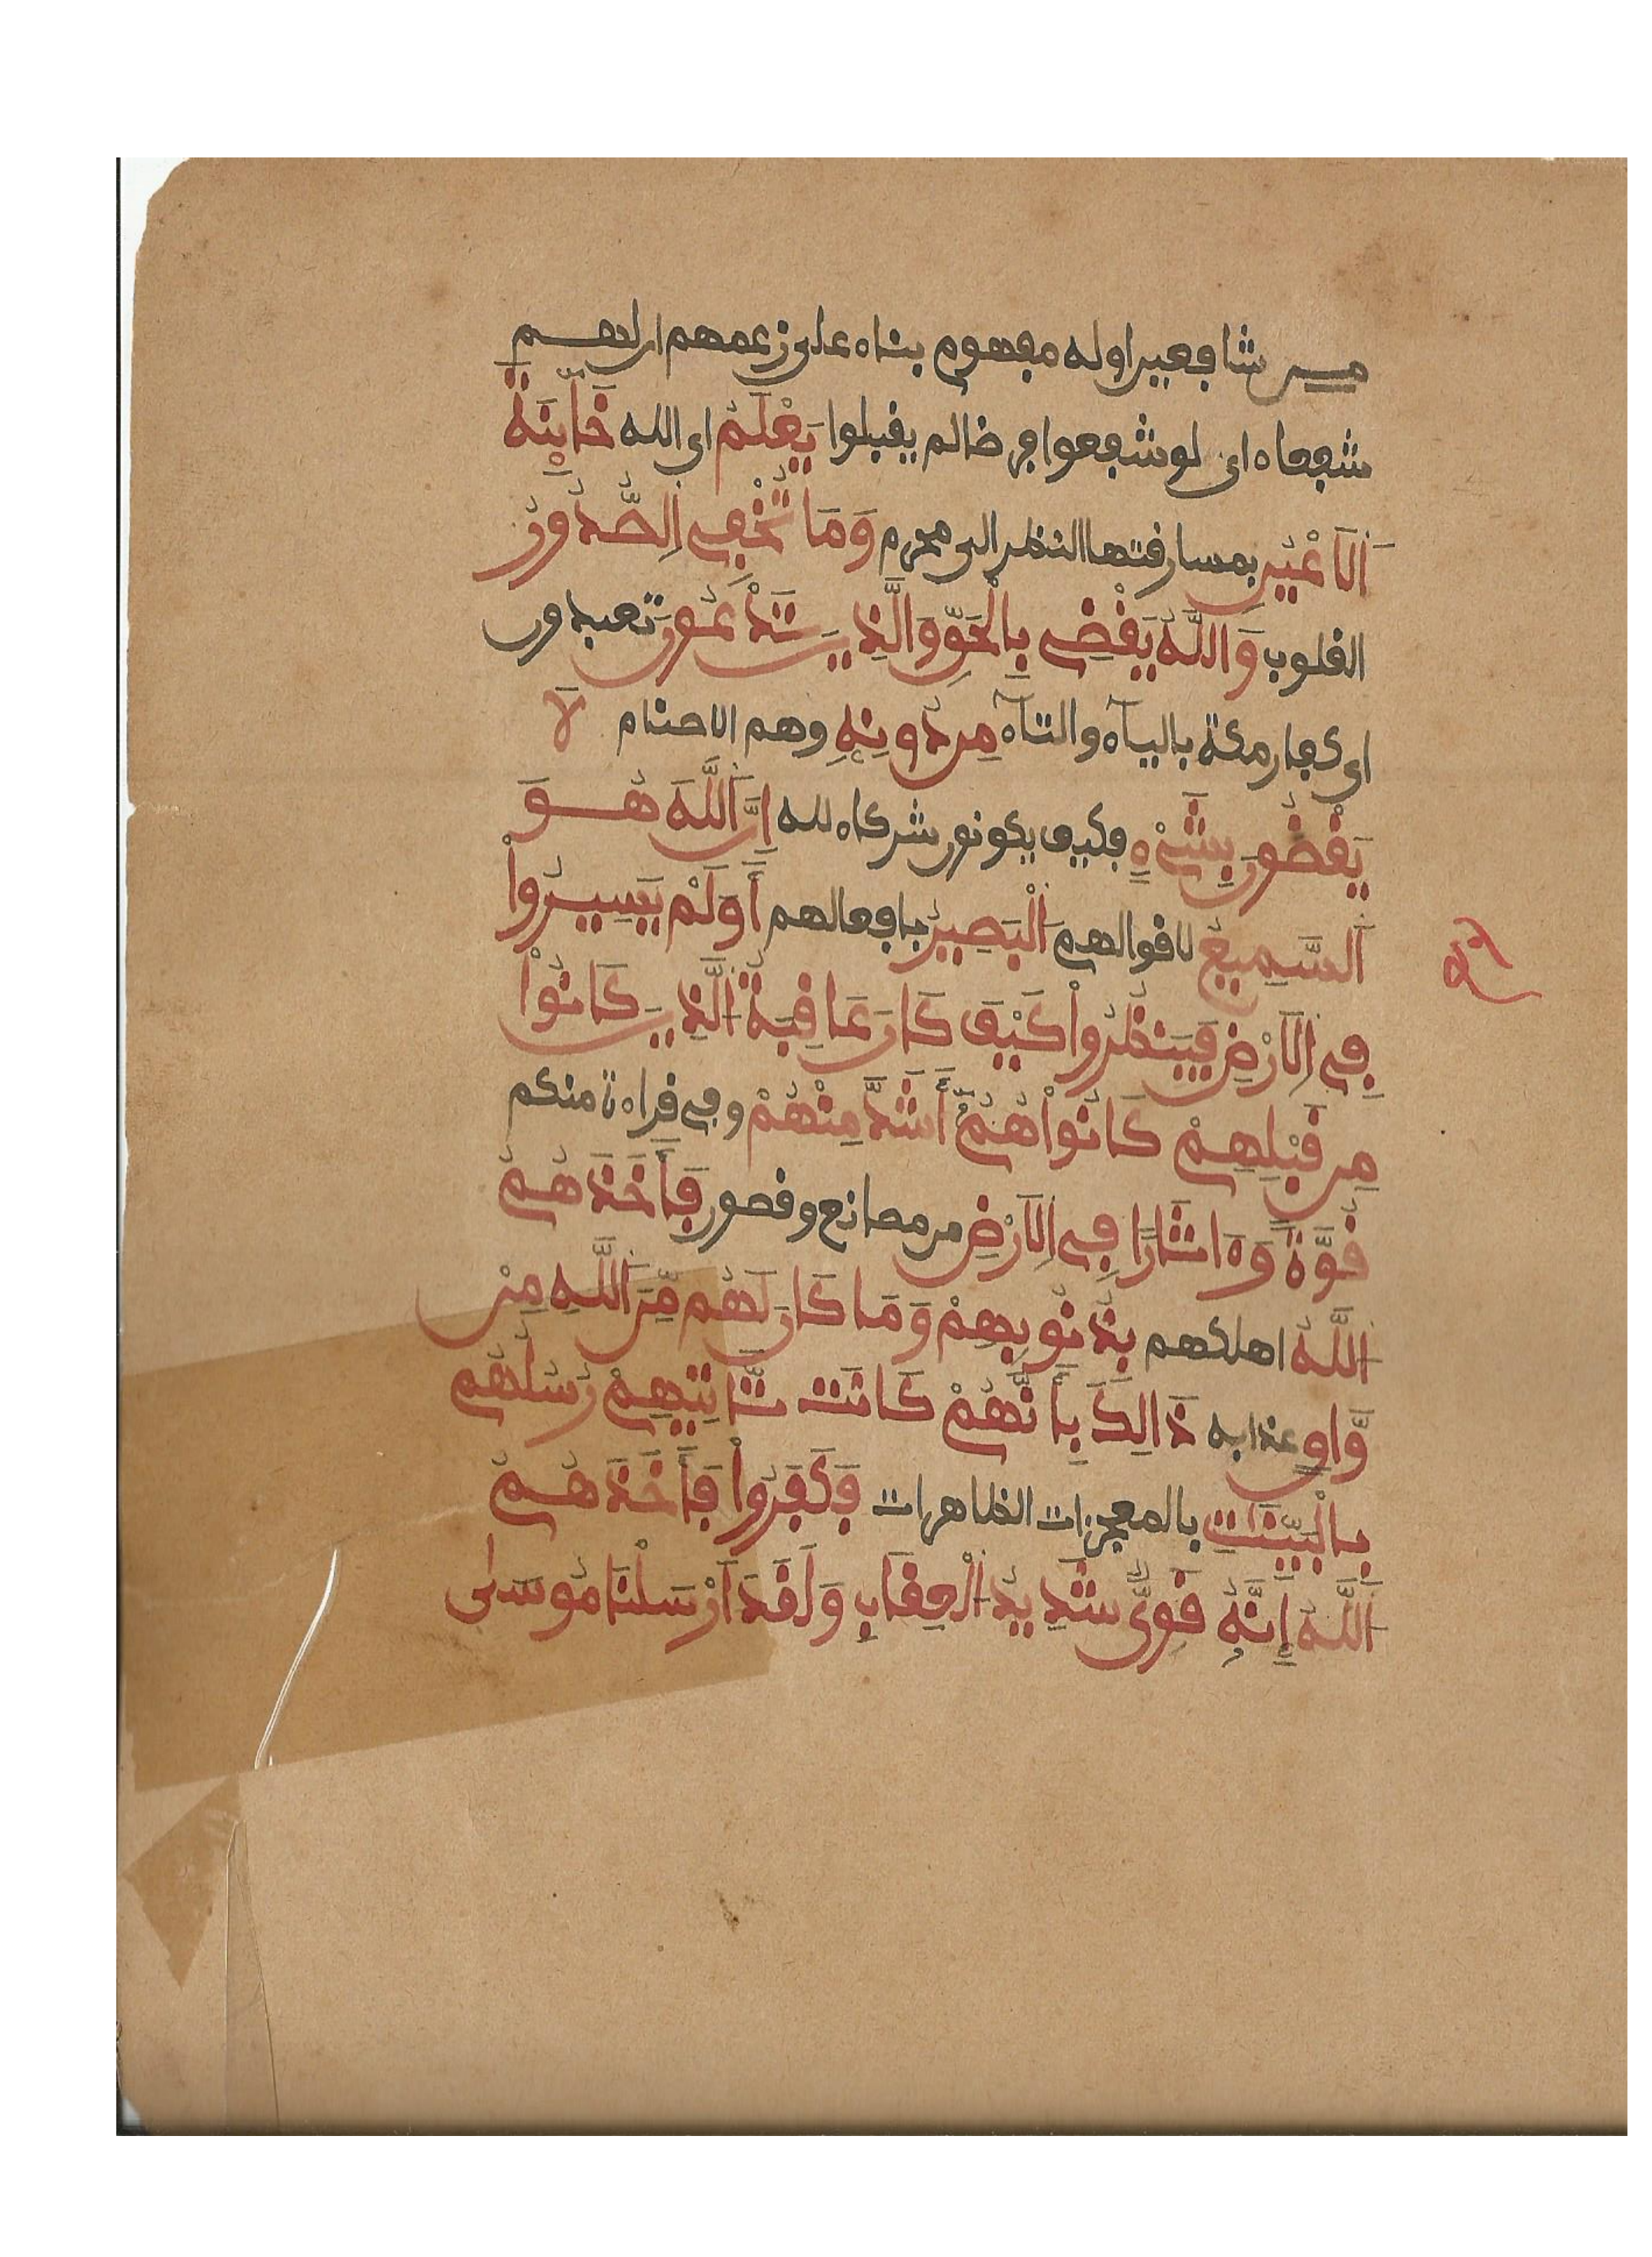 من شافعين اوله مفهوم بناء على زعمهم ان لهم
شفعاء اي لو شفعوا فرضا لم يقبلوا يَعْلَمُ اي الله خَآئِنَةَ
اَلَاعْيُنِ بمسارقتها النظر الى محرم وَمَا تُخْفِي اِلصُّدُورُ
القلوب وَاللَّهُ يَقْضِي بِالْحَقِّ وَالَّذِينَ تَدْعُونَ تعبدون
اي كفار مكة بالياء والتاء مِن دُونِهِ وهم الاصنام لَا
يَقْضُونَ بِشَيْءٍ فكيف يكونون شركاء لله إِنَّ اَللَّهَ هُوَ
اَلسَّمِيعُ لاقوالهم اَلْبَصِيرُ بافعالهم أَوَلَمْ يَسِيرُواْ
فِي اِلَارْضِ فَيَنظُرُواْ كَيْفَ كَانَ عَاقِبَةُ اُلَّذِينَ كَانُواْ
مِن قَبْلِهِمْ كَانُواْ هُمْ أَشَدَّ مِنْهُمْ وفي قراءة منكم
قُوَّةً وَءَاثَارًا فِي اِلَارْضِ من مصانع وقصور فَأَخَذَهُمُ
اُللَّهُ اهلكهم بِذُنُوبِهِمْ وَمَا كَانَ لَهُم مِّنَ اَللَّهِ مِنْ
وَّاقٍ عذابه ذَالِكَ بِأَنَّهُمْ كَانَت تَّاتِيهِمْ رُسُلُهُم
بِالْبَيِّنَٰتِ بالمعجزات الظاهرات فَكَفَرُواْ فَأَخَذَهُمُ
اُللَّهُ إِنَّهُ قَوِيٌّ شَدِيدُ اُلْعِقَابِ وَلَقَدَ اَرْسَلْنَا مُوسَىٰ